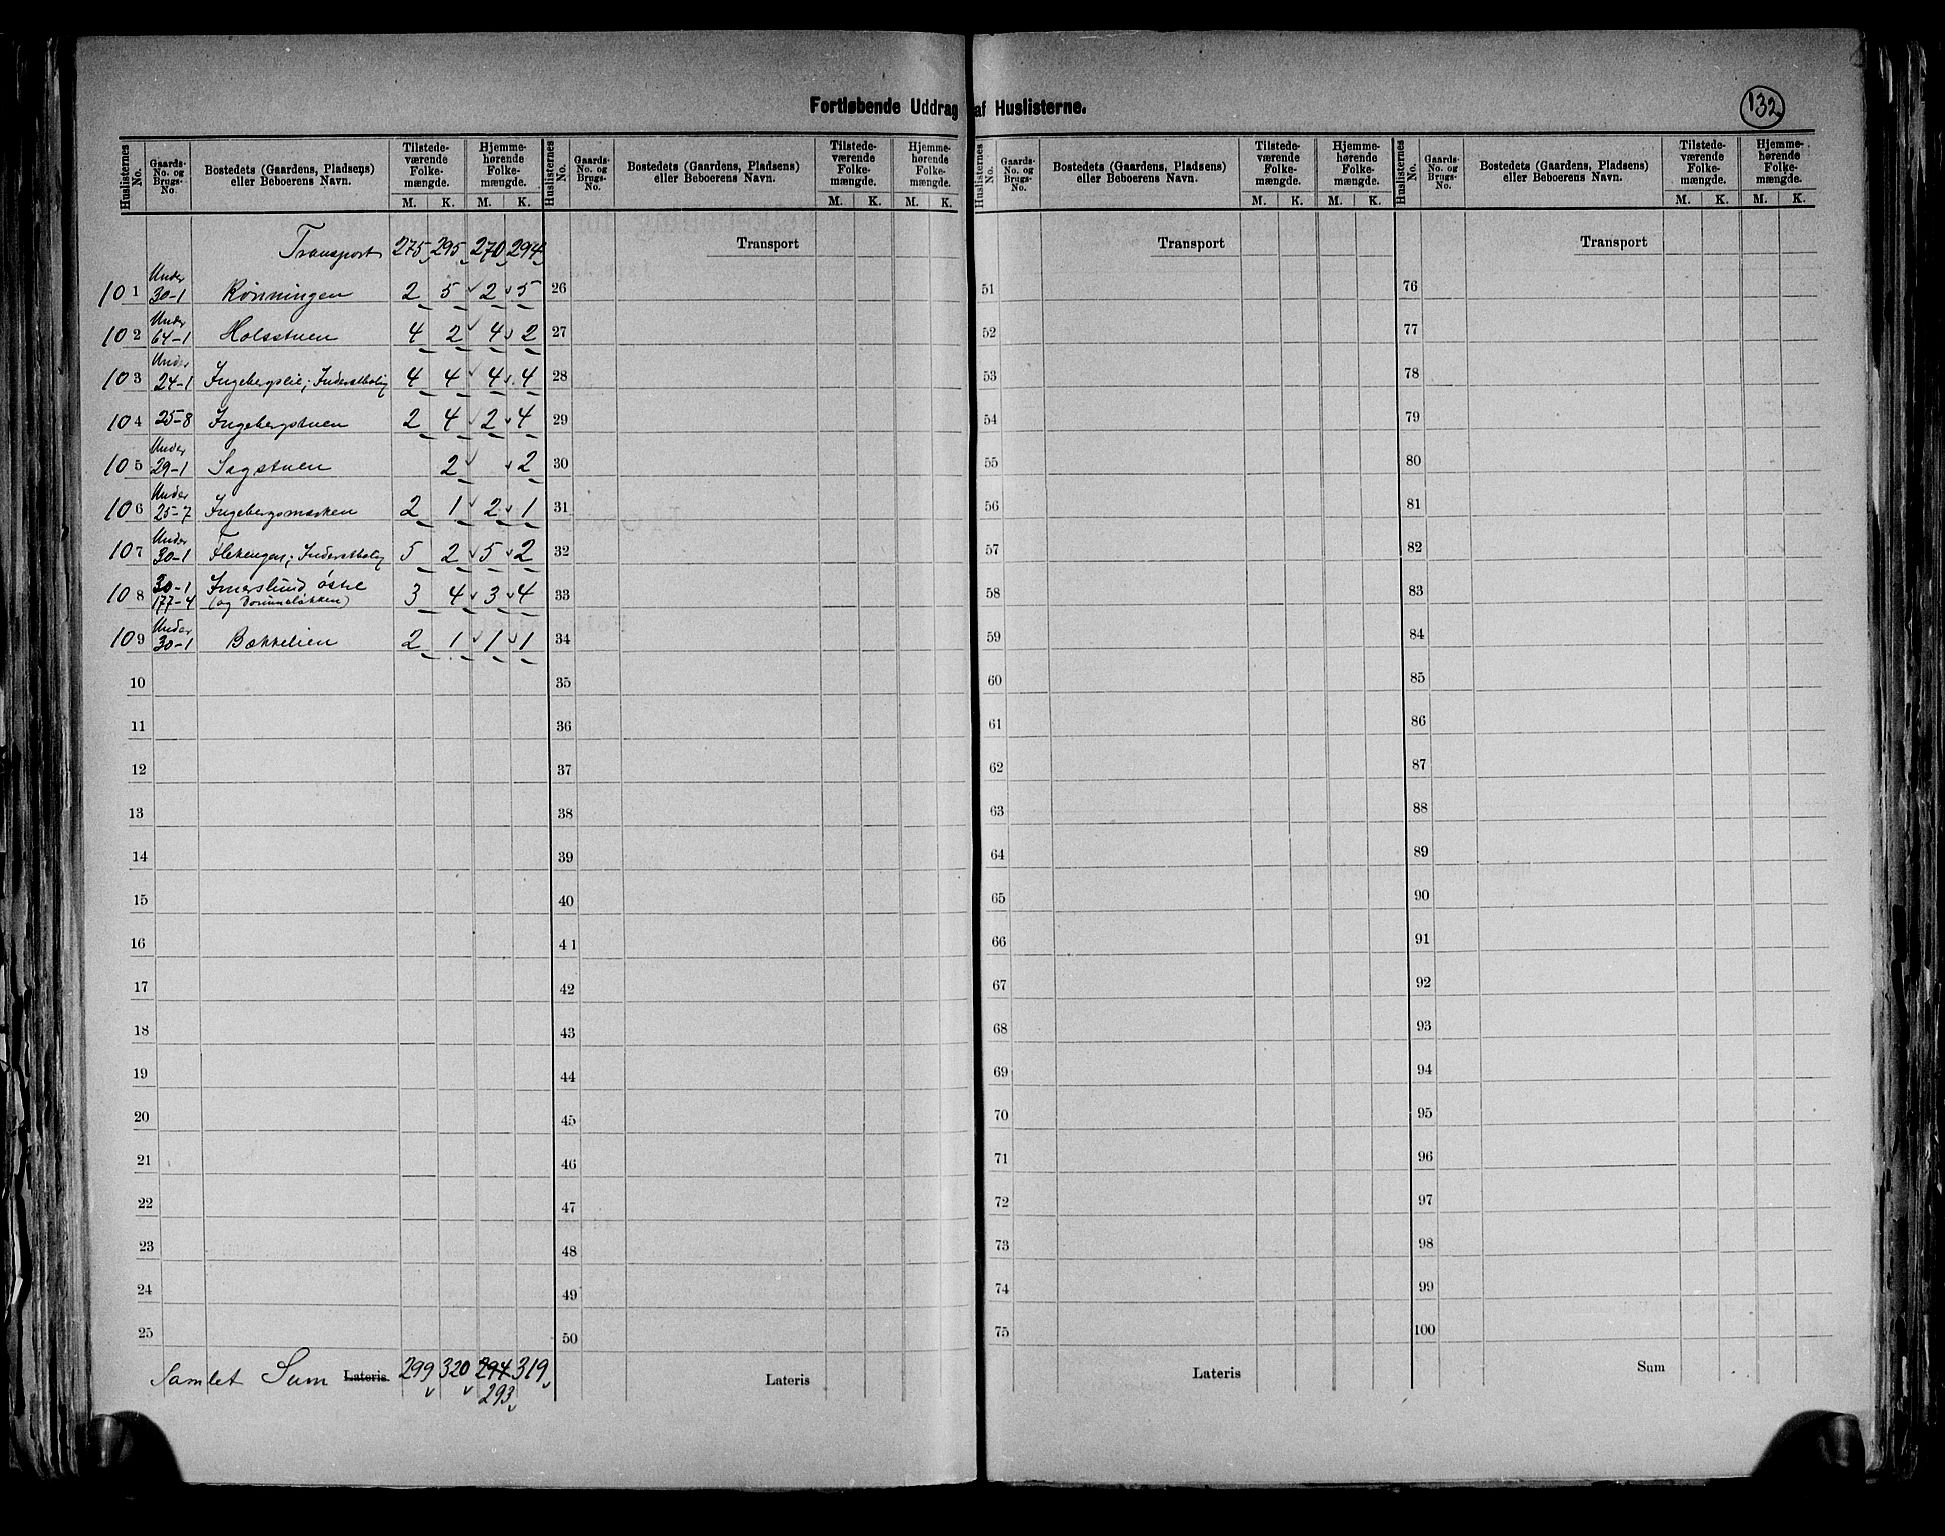 Fortløbende Uddrag af Huslisterne.
132
Huslisternes No. Gaards- No. og Brugs- No. Bostedets (Gaardens, Pladsens) eller Beboerens Navn. Tilstede- værende Folke- mængde. M. K. Hjemme- hørende Folke- mængde. M. K.
Transport 275 295 270 294
101 Under 30-1 Rønningen 2 5 2 5
102 Under 64-1 Holsstuen 4 2 4 2
103 Under 24-1 Ingebergslie; Inderstbolig 4 4 4 4
104 25-8 Ingebergstuen 2 4 2 4
105 Under 29-1 Sagstuen 2 2
106 Under 25-7 Ingebergsmarken 2 1 2 1
107 Under 30-1 Flekengen; Inderstbolig 5 2 5 2
108 30-1 177-4 Imerslund østre (og 3 4 3 4
109 Under 30-1 Bækkelien 2 1 1 1
10
11
12
13
14
15
16
17
18
19
20
21
22
23
24
25
Samlet Sum Lateris. 299 320 294 319
293
Huslisternes No. Gaards- No. og Brugs- No. Bostedets (Gaardens, Pladsens) eller Beboerens Navn. Tilstede- værende Folke- mængde. M. K. Hjemme- hørende Folke- mængde. M. K.
Transport
26
27
28
29
30
31
32
33
34
35
36
37
38
39
40
41
42
43
44
45
46
47
48
49
50
Lateris
Huslisternes No. Gaards- No. og Brugs- No. Bostedets (Gaardens, Pladsens) eller Beboerens Navn. Tilstede- værende Folke- mængde. M. K. Hjemme- hørende Folke- mængde. M. K.
Transport
51
52
53
54
55
56
57
58
59
60
61
62
63
64
65
66
67
68
69
70
71
72
73
74
75
Lateris
Huslisternes No. Gaards- No. og Brugs- No. Bostedets (Gaardens, Pladsens) eller Beboerens Navn. Tilstede- værende Folke- mængde. M. K. Hjemme- hørende Folke- mængde. M. K.
Transport
76
77
78
79
80
81
82
83
84
85
86
87
88
89
90
91
92
93
94
95
96
97
98
99
100
Sum